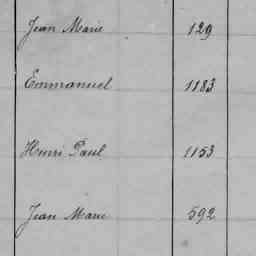 Jean Marie 129
Emmanuel 1183
Henri Paul 1153
Jean Marie 592